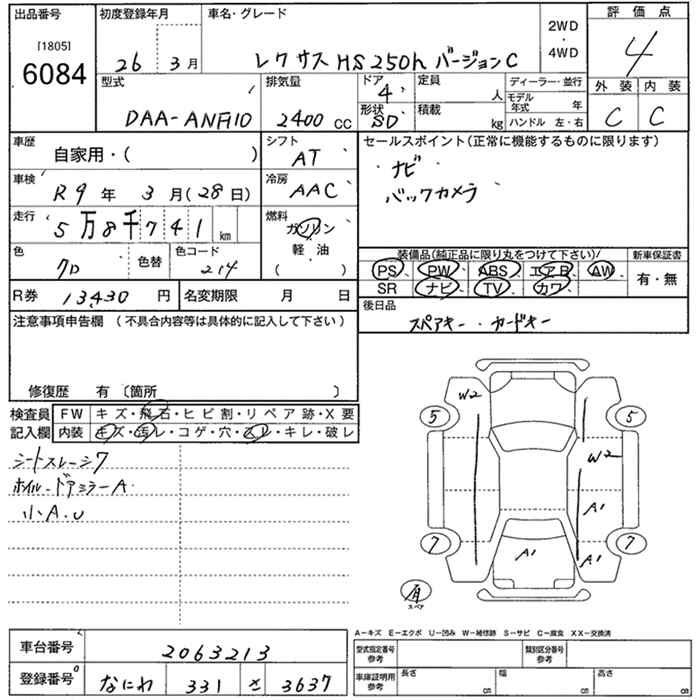 出品番号 初度登録年月 車名・グレード 評価点
[1805] 6084 26 3月 レクサス HS250h バージョンC 2WD・4WD 4
型式 排気量 ドア 4 定員 人 ディーラー・並行 外装 内装
DAA-ANF10 2400 CC 形状 SD 積載 kg モデル年式 年 C C
ハンドル 左・右
車歴 自家用・( ) シフト AT セールスポイント(正常に機能するものに限ります)
車検 R9年 3月(28日) 冷房 AAC ナビ
バックカメラ
走行 5万8千741km 燃料 ガソリン
軽・油
( )
色 クロ 色替 色コード 214 装備品(純正品に限り丸をつけて下さい) 新車保証書
PS PW ABS エアB AW 有・無
SR ナビ TV カワ
R券 13430円 名変期限 月 日 後日品
スペアキー・カードキー
注意事項申告欄 (不具合内容等は具体的に記入して下さい)
修復歴 有 〔箇所 〕
検査員 FW キズ・飛石・ヒビ割・リペア跡・X要
記入欄 内装 キズ・汚レ・コゲ・穴・スレ・キレ・破レ
シートスレ・シワ
ホイル・ドアミラーA
小A.U
W2
5 5
W2
A1
7 7
A1 A1
有
スペア
A―キズ E―エクボ U―凹み W―補修跡 S―サビ C―腐食 XX―交換済
車台番号 2063213 型式指定番号 参考 類別区分番号 参考
登録番号 なにわ 331 さ 3637 車庫証明用 参考 長さ cm 幅 cm 高さ cm